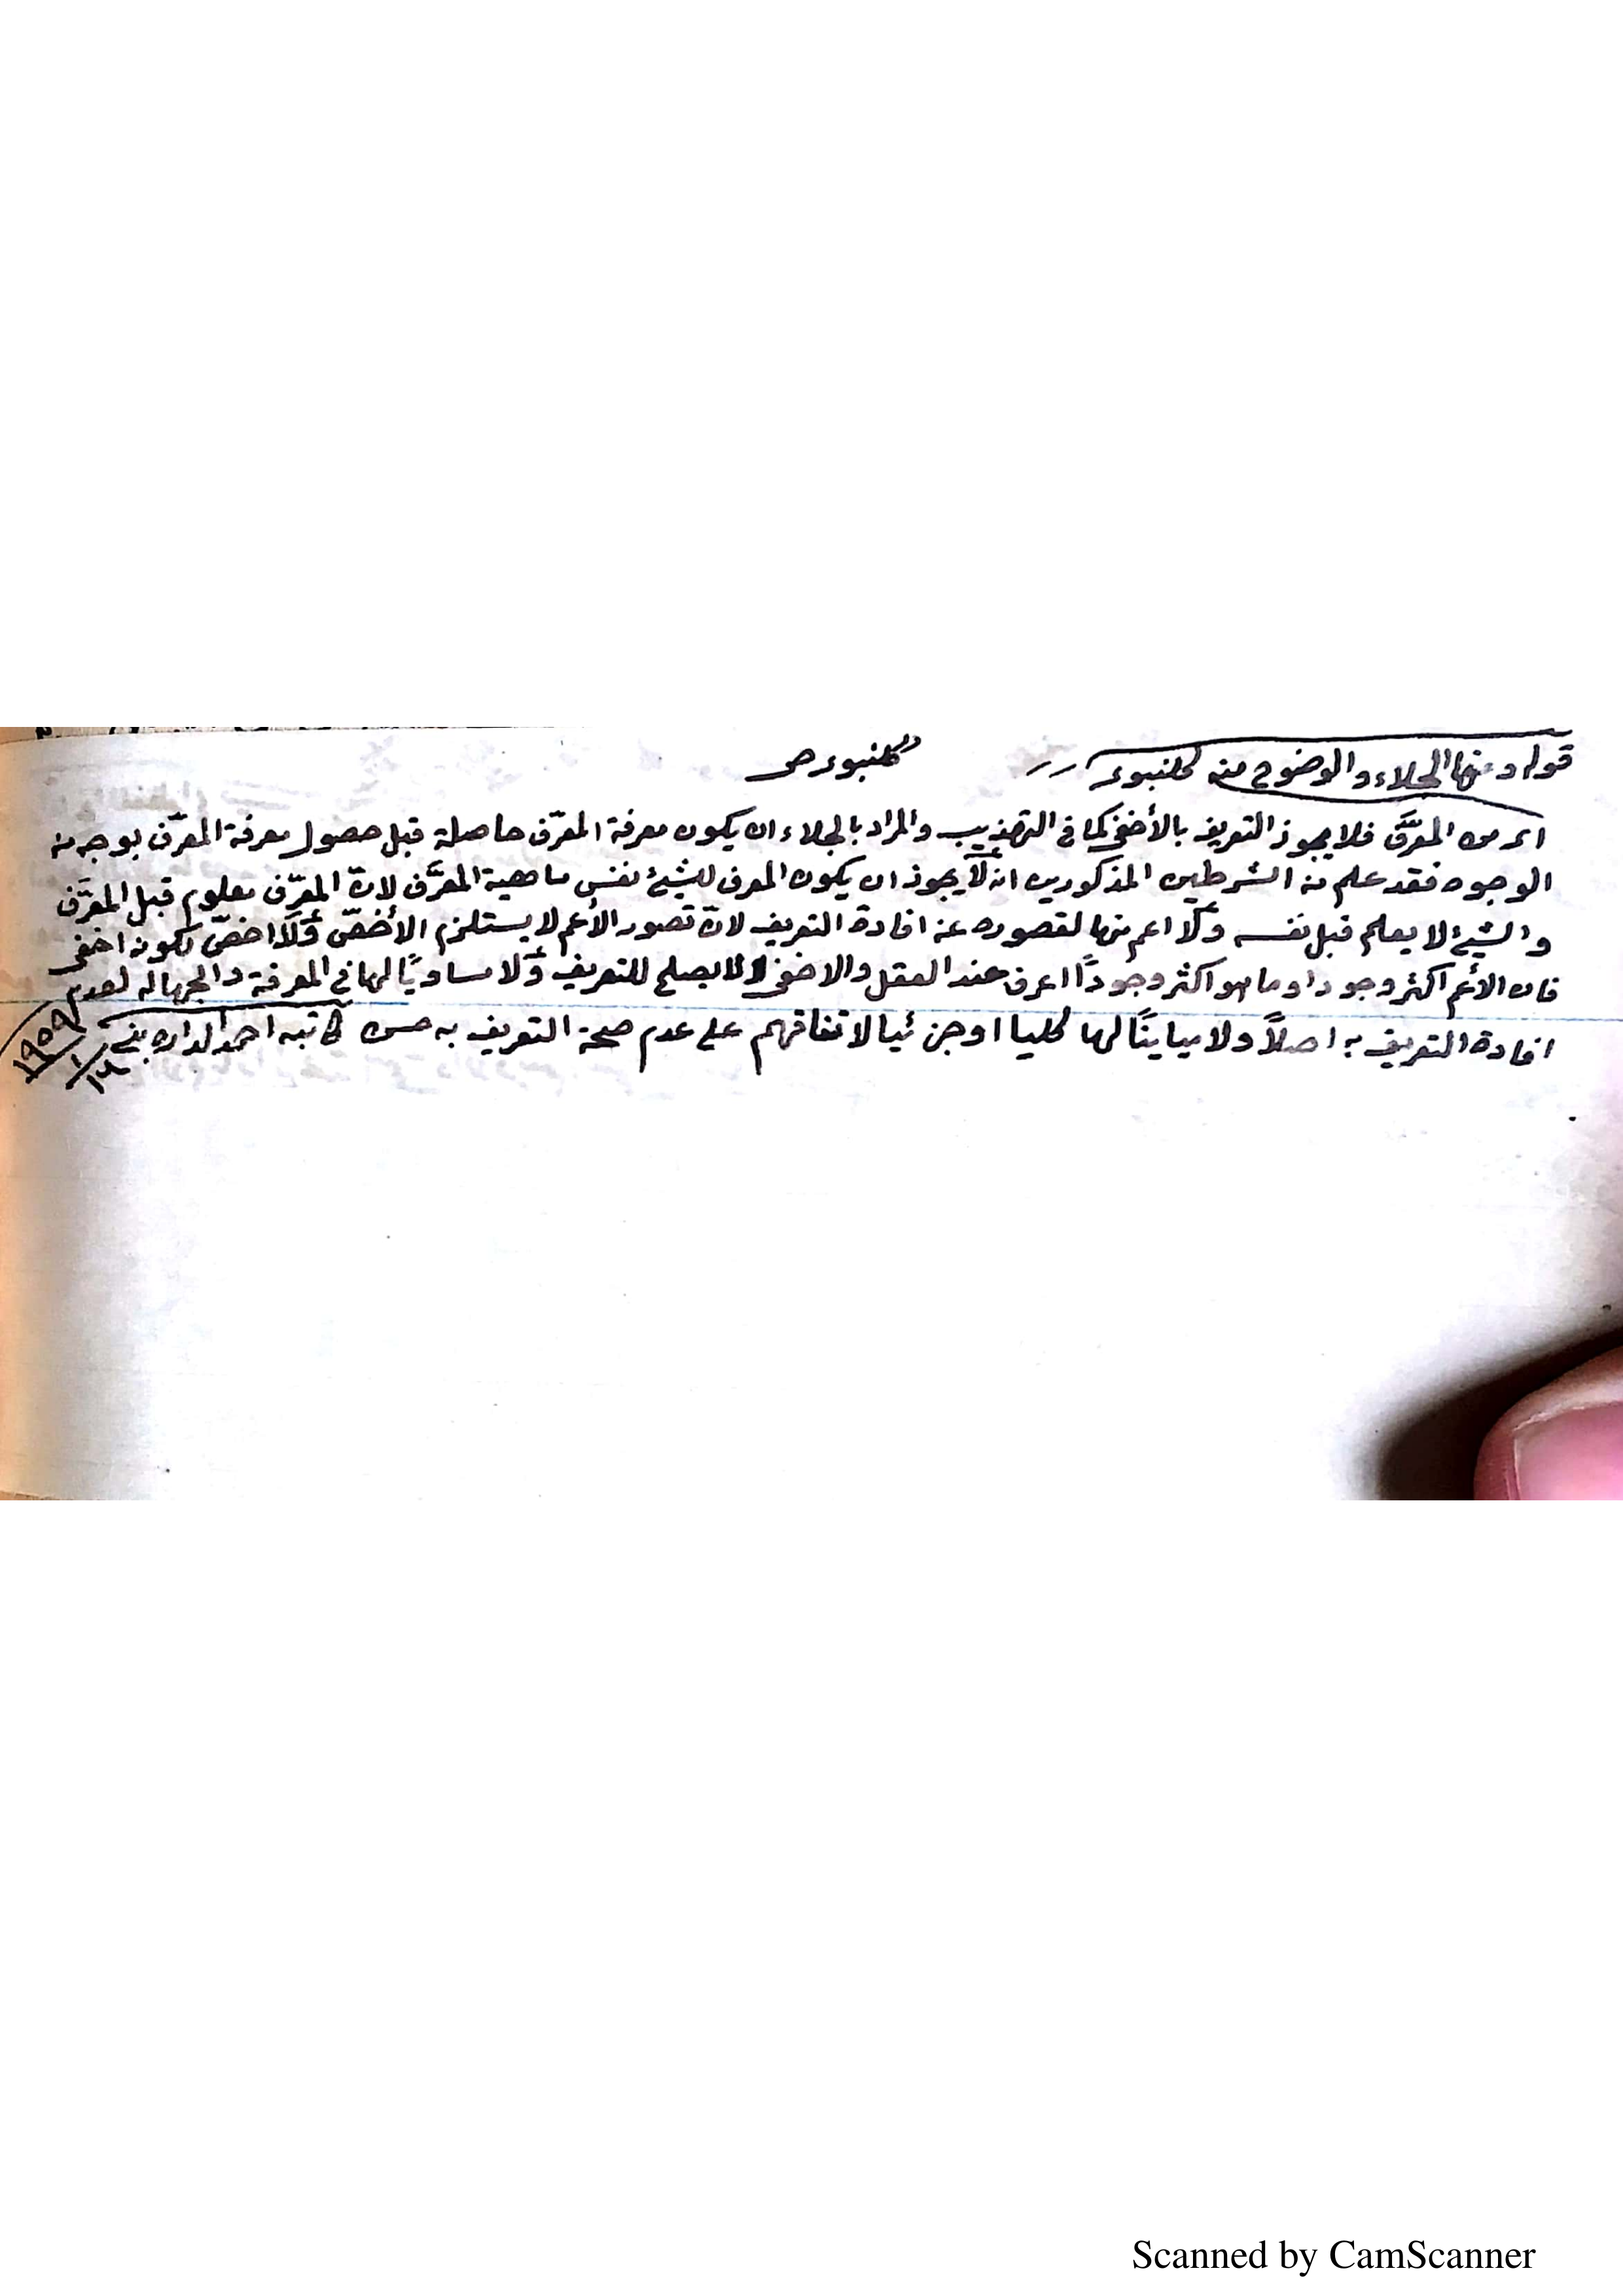 قوله ومنها الجلاء والوضوح منه كلنبوى كلنبوى ص
اى من المعرَّف فلا يجوز التعريف بالأخفى كما فى التهذيب والمراد بالجلاء ان يكون معرفة المعرّف حاصلة قبل حصول معرفة المعرَّف بوجه من
الوجوه فقد علم من الشرطين المذكورين انه لا يجوز ان يكون المعرف للشيئ نفس ماهية المعرَّف لانّ المعرّف معلوم قبل المعرَّف
والشيئ لا يعلم قبل نفسه ولا اعم منها لقصوره عن افادة التعريف لانّ تصور الأعم لا يستلزم الأخصّ ولا اخصّ لكونه اخفى
فان الأعم اكثر وجودا وما هو اكثر وجودًا اعرف عند العقل والاخفى لا يصلح للتعريف ولا مساويًا لها فى المعرفة والجهالة لعدم
افادة التعريف به اصلاً ولا مباينًا لها كليا او جزئيا لاتفاقهم على عدم صحة التعريف به حسن كاتبه احمد
١٩٥٩
Scanned by CamScanner